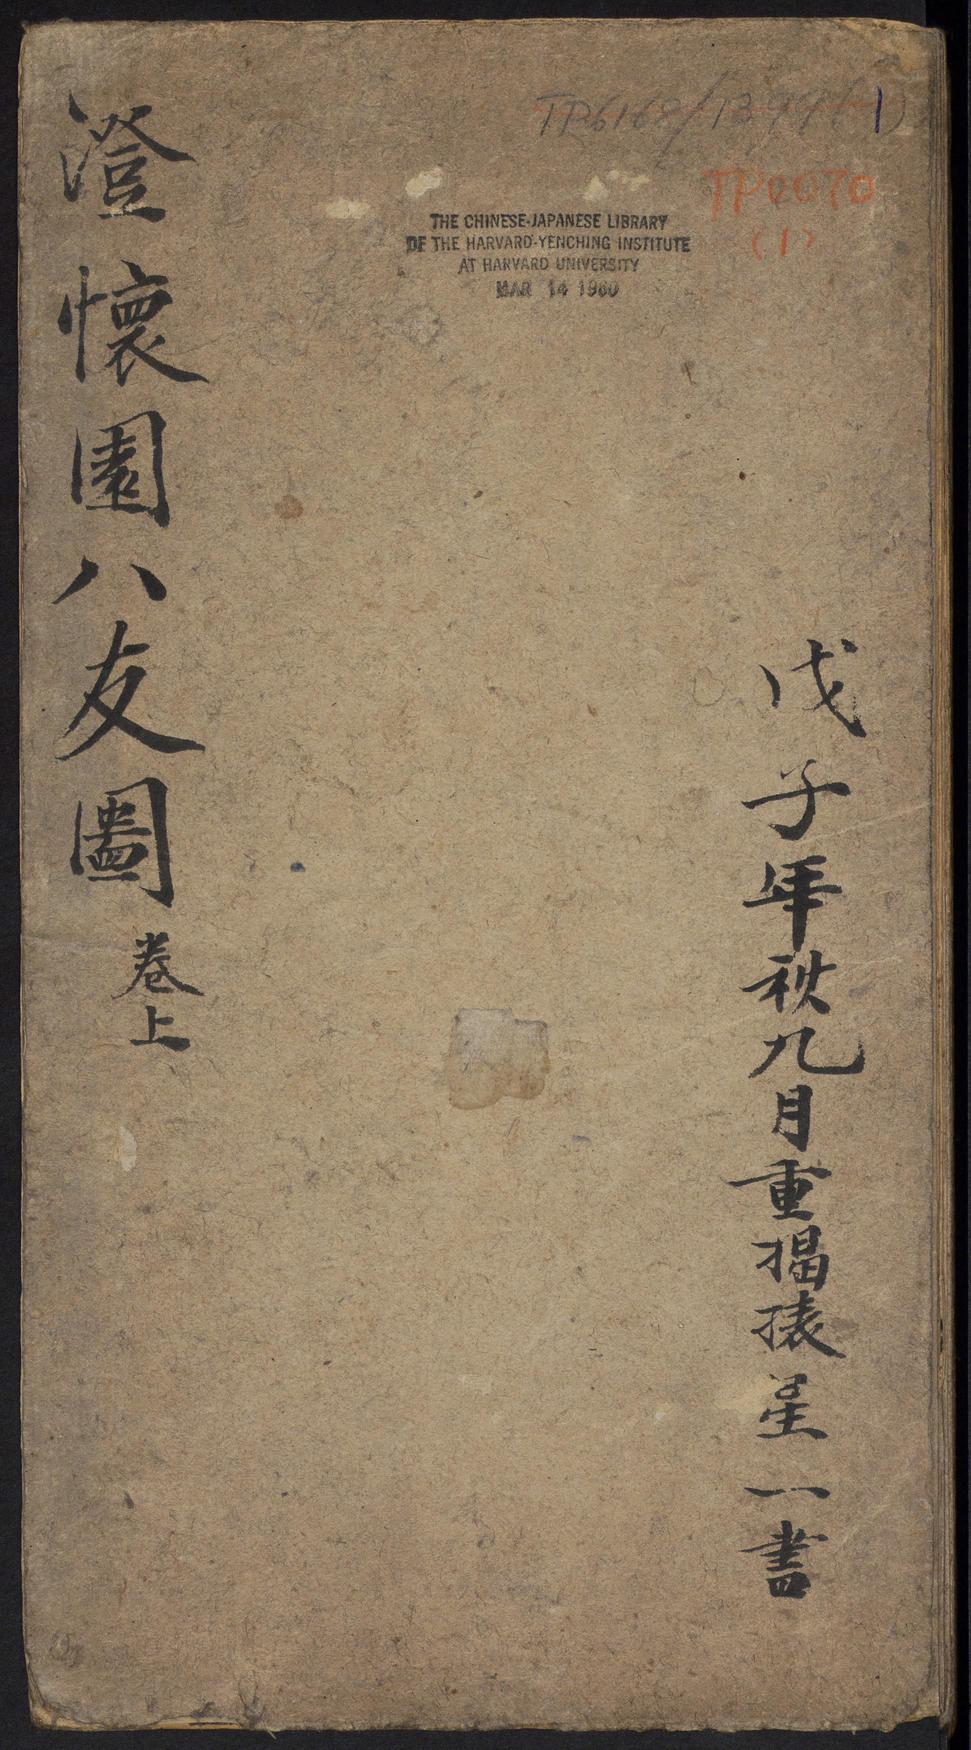 TP6168/1399(1)
TP0070
(1)
THE CHINESE-JAPANESE LIBRARY
OF THE HARVARD-YENCHING INSTITUTE
AT HARVARD UNIVERSITY
MAR 14 1960
戊子年秋九月重揭裱星一書
澄懷園八友圖卷上